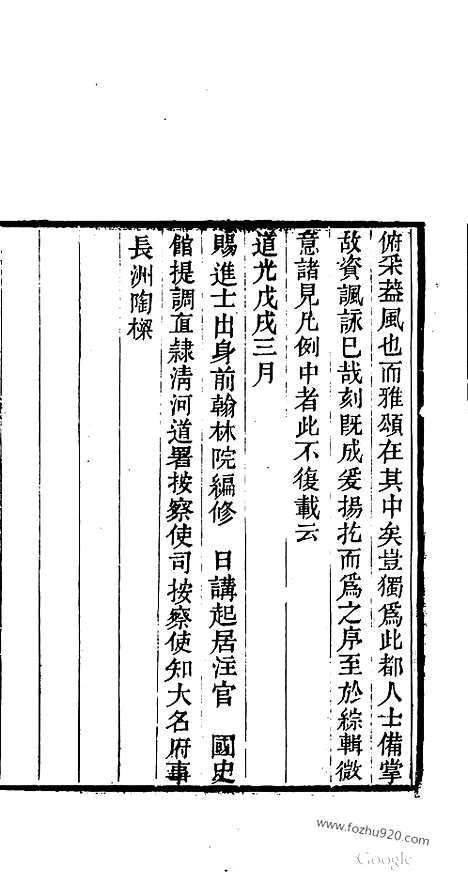 俯采葢風也而雅頌在其中矣豈獨爲此都人士備掌
故資諷詠已哉刻既成爰揚扢而爲之序至於綜輯微
意諸見凡例中者此不復載云
道光戊戌三月
賜進士出身前翰林院編修　日講起居注官　國史
館提調直隸清河道署按察使司按察使知大名府事
長洲陶樑
www.fozhu920.com
Google